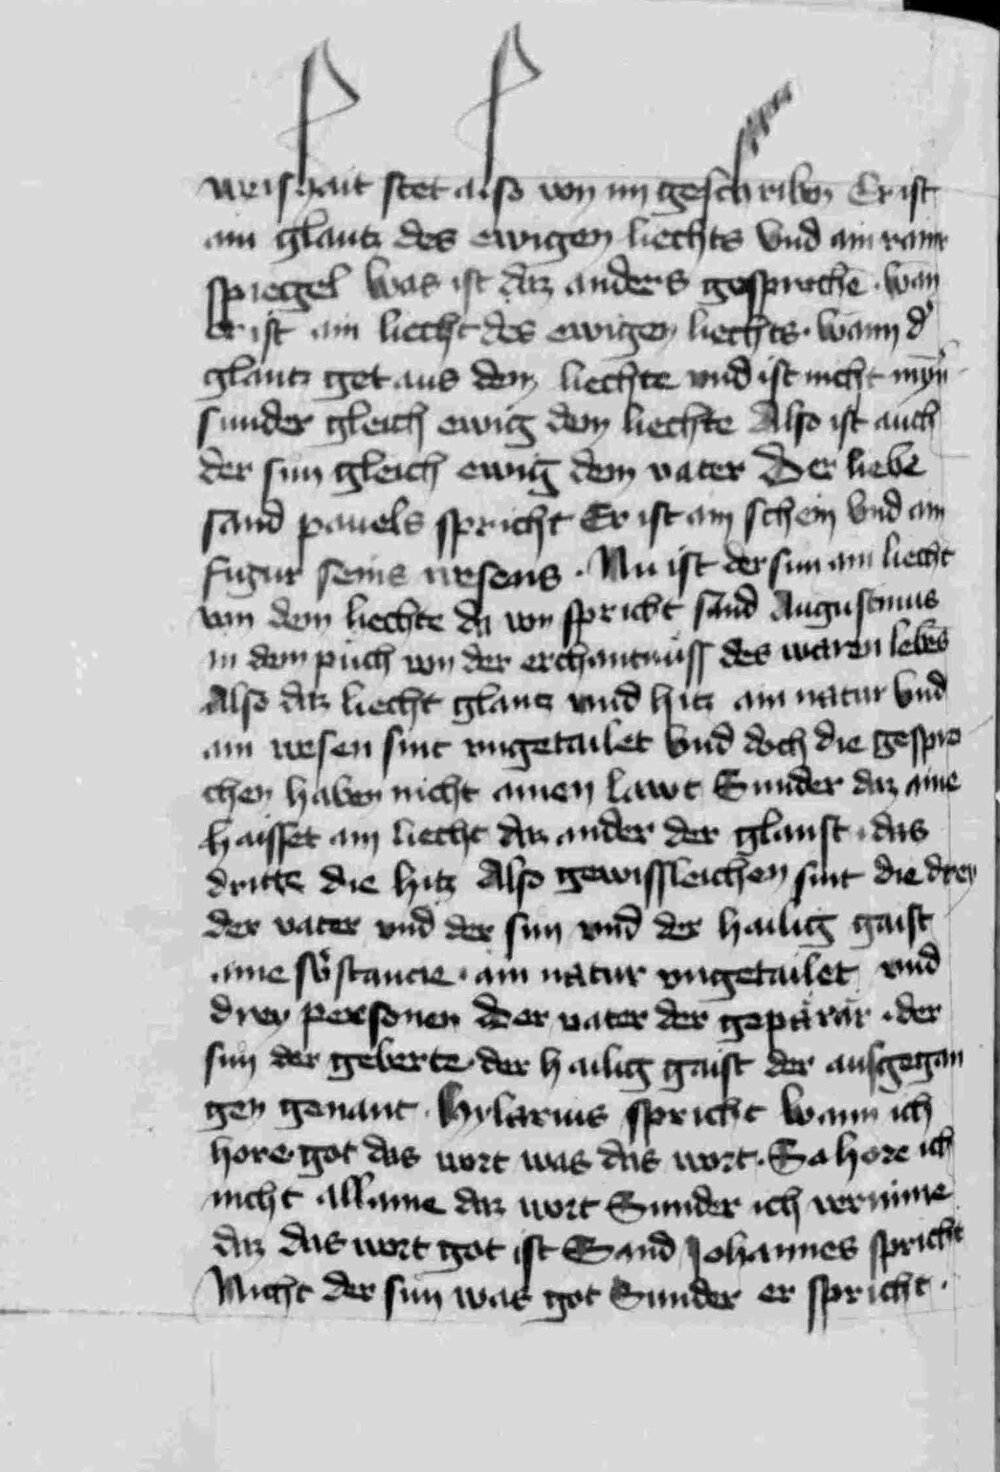 weishait stet also von im geschriben Er ist
ain glantz des ewigen liechts vnd ain rainr
spiegel was ist daz anders gesprochē · wan
er ist ain liecht des ewigen liechts · wann d'
glantz get aus dem liechte vnd ist nicht
sunder gleich ewig dem liechte Also ist auch
der sun gleich ewig dem vater Der liebe
sand pauels spricht Er ist ain schein vnd ain
figur seins wesens · Nu ist der sun ain liecht
von dem liechte da von spricht sand Augustinus
in dem půch von der erchantnüss des waren lebēs
Also daz liecht glantz vnd hitz ain natur vnd
ain wesen sint vngetailet vnd doch die gespro
chen haben nicht ainen lawt Sunder daz aine
haisset ain liecht daz ander der glanst · das
dritte die hitz Also gewissleichen sint die drey
der vater vnd der sun vnd der hailig gaist
aine substancie · ain natur vngetailet vnd
drey personen der vater der gepärär · der
sun der geberte · der hailig gaist der ausgegan
gen genant · hylarius spricht wann ich
hore · got das wort was das wort · So hore ich
nicht allaine daz wort Sunder ich vernime
daz das wort got ist Sand Johannes spricht
Nicht der sun was got Sunder er spricht ·